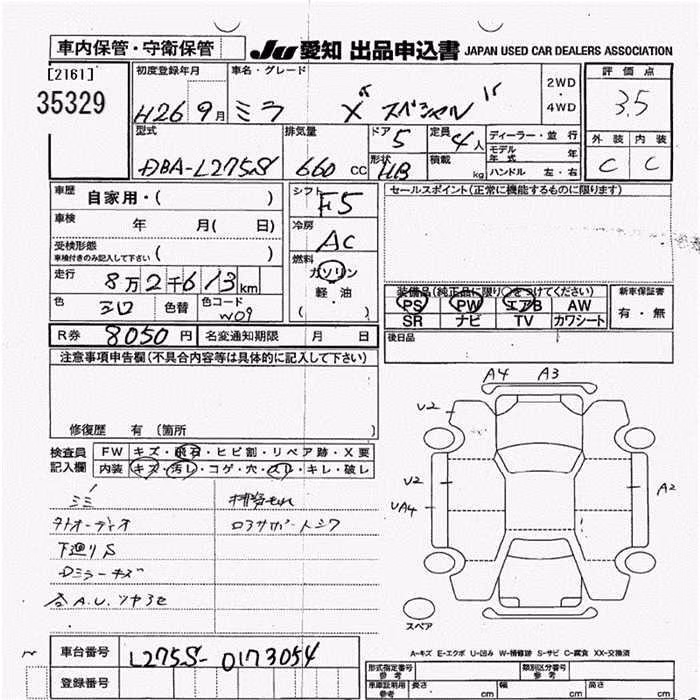 車内保管・守衛保管
JU 愛知 出品申込書 JAPAN USED CAR DEALERS ASSOCIATION
[2161]
35329
初度登録年月
H26 9月
車名・グレード
ミラ "X スペシャル"
2WD
・
4WD
評価点
3.5
型式
DBA-L275S
排気量
660 CC
ドア
5
定員
4人
形状
HB
積載
kg
ディーラー・並 行
モデル年式 年
ハンドル 左・右
外装 内装
C C
車歴
自家用・( )
車検
年 月( 日)
受検形態
車検付きのみ記入して下さい ( )
走行
8万2千613km
色
シロ
色替
色コード
W09
シフト
F5
冷房
AC
燃料
ガソリン
軽・油
( )
セールスポイント(正常に機能するものに限ります)
装備品(純正品に限り○をつけてください)
PS PW エアB AW
SR ナビ TV カワシート
新車保証書
有・無
後日品
R券 8050円 名変通知期限 月 日
注意事項申告欄(不具合内容等は具体的に記入して下さい)
修復歴 有(箇所
検査員
記入欄
FW キズ・飛石・ヒビ割・リペア跡・X要
内装 キズ・汚レ・コゲ・穴・スレ・キレ・破レ
下廻りS
Dミラーキズ
A4 A3
U2
U2
UA4
A2
スペア
A-キズ E-エクボ U-凹み W-補修跡 S-サビ C-腐食 XX-交換済
車台番号 L275S-0173054
登録番号
形式指定番号
参考
類別区分番号
参考
車庫証明用
参考
長さ cm 幅 cm 高さ cm